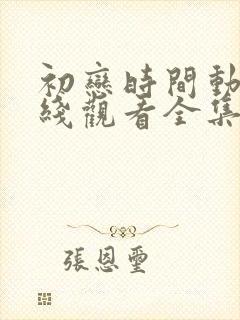 初戀時間動
綫觀看全集
張恩璽